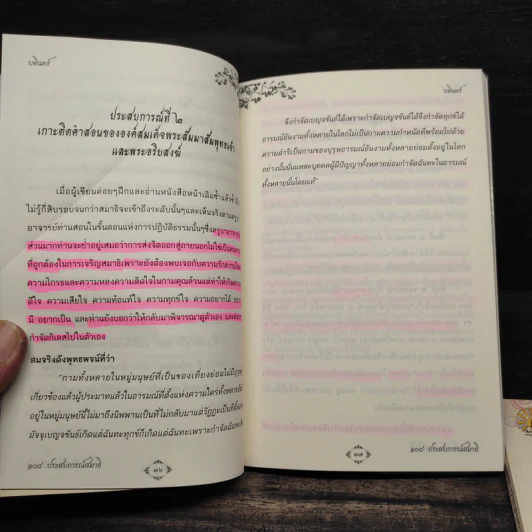 บดินทร์
ประสบการณ์ที่ ๒
เกาะติดคำสอนขององค์สมเด็จพระสัมมาสัมพุทธเจ้า
และพระอริยสงฆ์
เมื่อผู้เขียนค่อยๆฝึกและอ่านหนังสือหน้าเดิมซ้ำแล้วซ้ำ
ไม่รู้กี่สิบรอบจนกว่าสมาธิจะเข้าถึงระดับนั้นๆและเห็นจริงตาม
อาจารย์ท่านสอนในขั้นตอนแห่งการปฏิบัติธรรมนั้นๆ
ส่วนมากท่านจะย่ำอยู่เสมอว่าการส่งจิตออกสู่ภายนอกไม่ใช่เป็น
ที่ถูกต้องในการเจริญสมาธิเพราะยังต้องพบเจอกับความรักความโลภ
ความโกรธและความหลงความติดใจในกามคุณล้วนแต่ทำให้เกิดความ
ดีใจ ความเสียใจ ความท้อแท้ใจ ความทุกข์ใจ ความอยากได้
มี อยากเป็น และท่านยังบอกว่าให้กลับมาพิจารณาดูตัวเอง
กำจัดกิเลสไปในตัวเอง
สมจริงดังพุทธพจน์ที่ว่า
"กามทั้งหลายในหมู่มนุษย์ที่เป็นของเที่ยงย่อมไม่มี
เกี่ยวข้องแล้วผู้ประมาทแล้วในอารมณ์ที่ตั้งแห่งความใคร่ทั้งหลาย
อยู่ในหมู่มนุษย์มีไม่มาถึงนิพพานเป็นที่ไม่กลับมาแต่วัฏฏะเป็นที่ตั้ง
มัจจุเบญจขันธ์เกิดแต่ฉันทะทุกข์ก็เกิดแต่ฉันทะเพราะกำจัดฉันทะ
๑๐๘ ประสบการณ์สมาธิ
๓๖
บดินทร์
จึงกำจัดเบญจขันธ์ได้เพราะกำจัดเบญจขันธ์ได้จึงกำจัดทุกข์ได้
อารมณ์อันงามทั้งหลายในโลกไม่เป็นกามความกำหนัดที่พร้อมไปด้วย
ความดำริเป็นกามของบุรุษอารมณ์อันงามทั้งหลายย่อมตั้งอยู่ในโลก
อย่างนั้นนั่นแหละบุคคลผู้มีปัญญาทั้งหลายย่อมกำจัดฉันทะในอารมณ์
ทั้งหลายนั้นโดยแท้"
๓๗
๑๐๘ ประสบการณ์สมาธิ